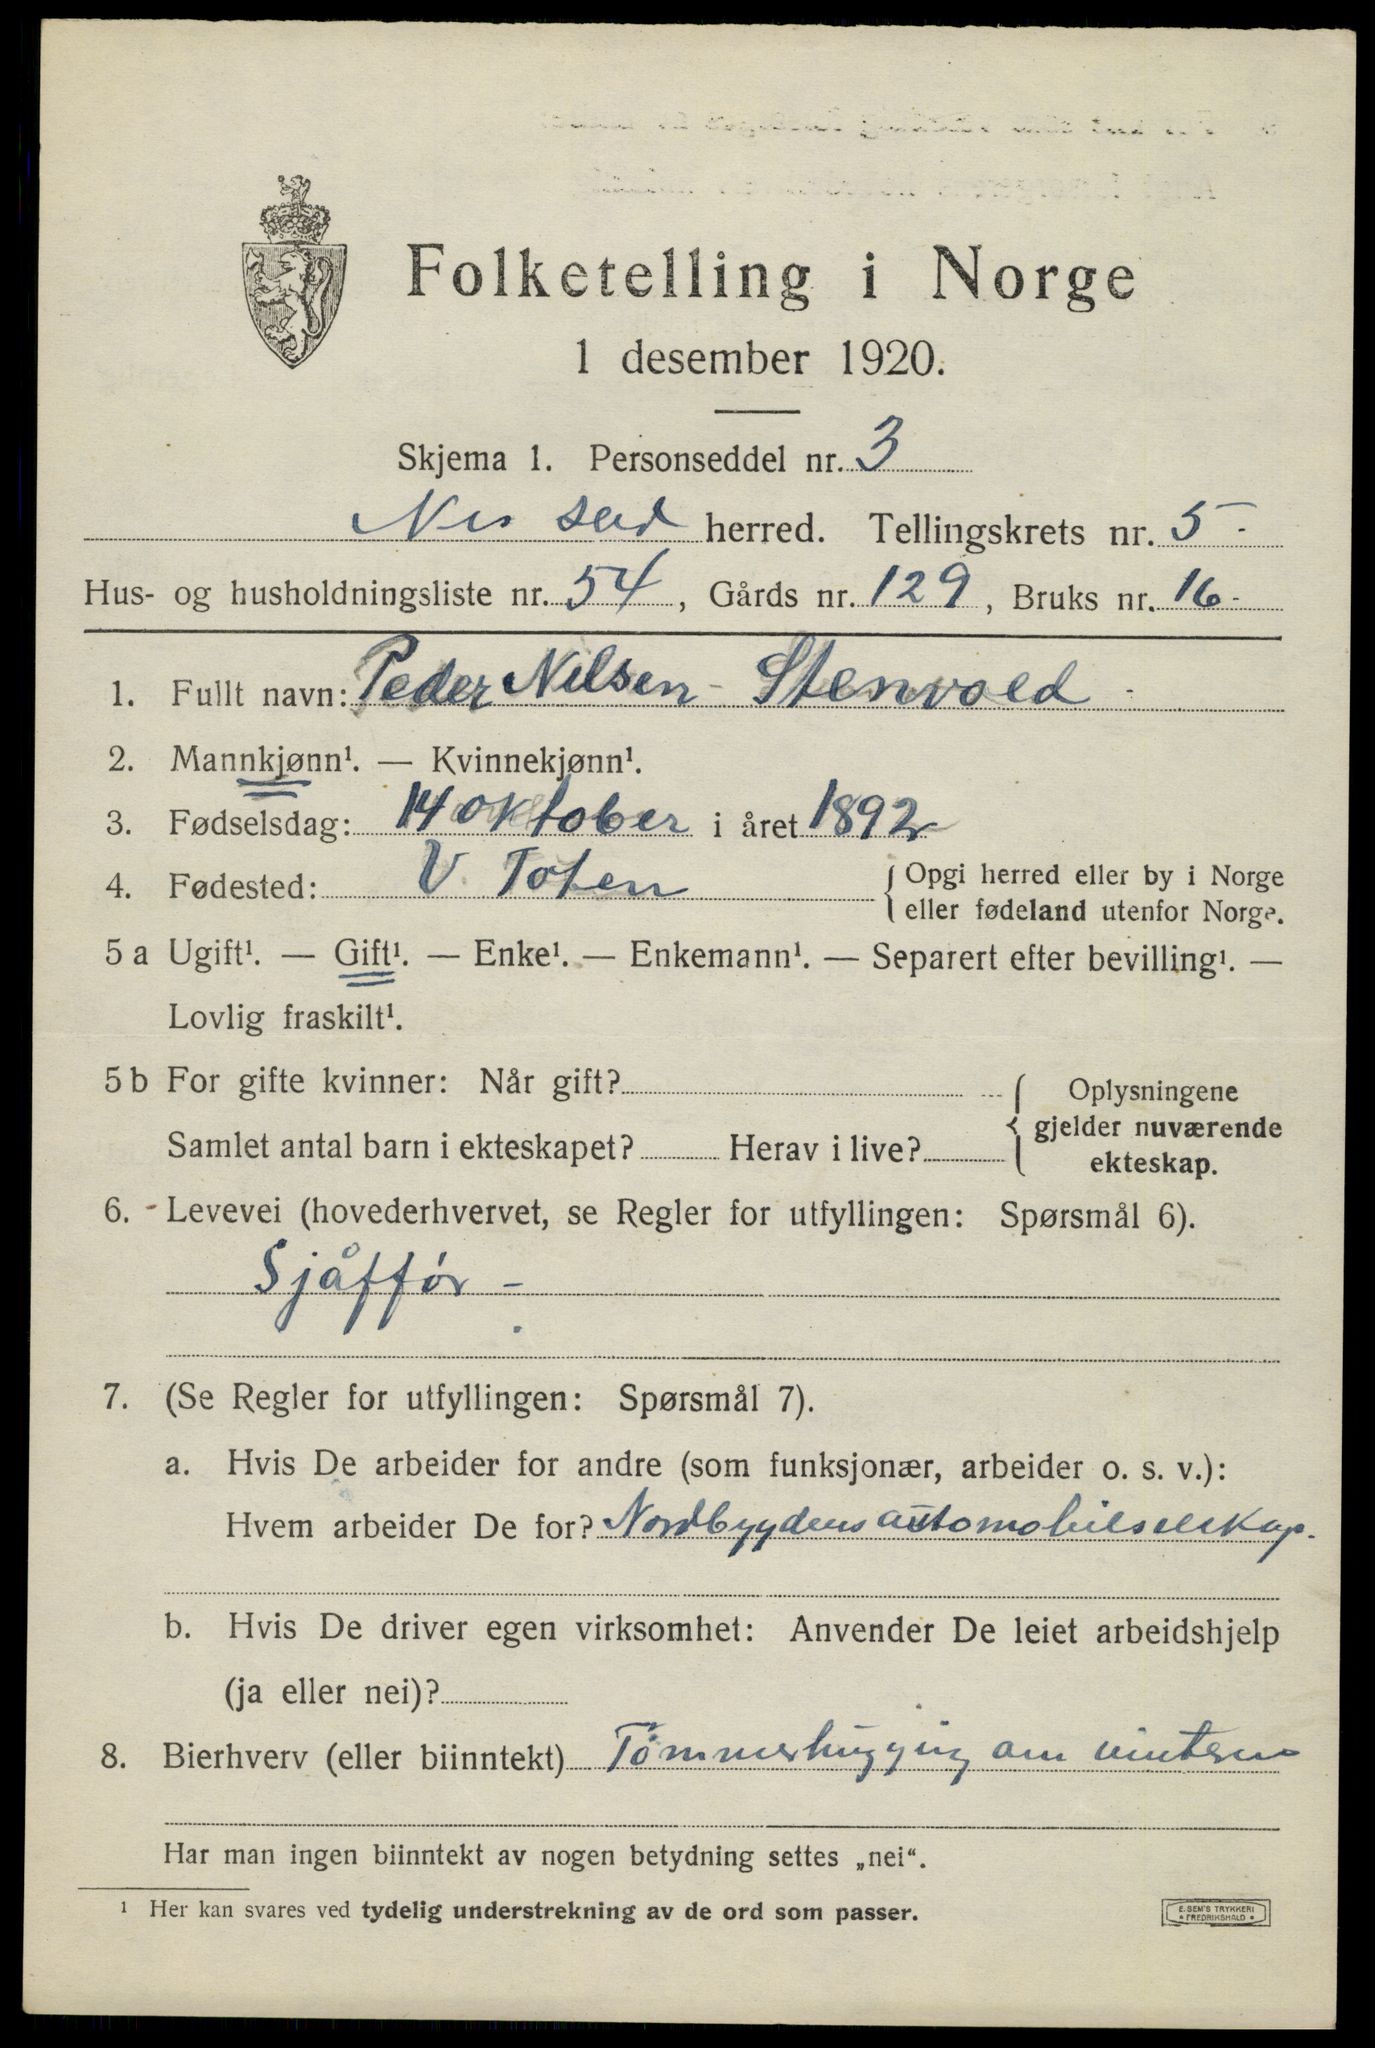 Folketelling i Norge
1 desember 1920.
Skjema 1. Personseddel nr. 3
Nes herred. Tellingskrets nr. 5-
Hus- og husholdningsliste nr. 54, Gårds nr. 129, Bruks nr. 16-
1. Fullt navn: Peder Nilsen - Stenvold -
2. Mannkjønn¹. — Kvinnekjønn¹.
3. Fødselsdag: 14 oktober i året 1892
4. Fødested: V. Toten { Opgi herred eller by i Norge
eller fødeland utenfor Norge.
5 a Ugift¹. — Gift¹. — Enke¹. — Enkemann¹. — Separert efter bevilling¹. —
Lovlig fraskilt¹.
5 b For gifte kvinner: Når gift? { Oplysningene
gjelder nuværende
Samlet antal barn i ekteskapet? Herav i live?
ekteskap.
6. Levevei (hovederhvervet, se Regler for utfyllingen: Spørsmål 6).
Sjåffør -
7. (Se Regler for utfyllingen: Spørsmål 7).
a. Hvis De arbeider for andre (som funksjonær, arbeider o. s. v.):
Hvem arbeider De for? Nordbygdens automobilselskap.
b. Hvis De driver egen virksomhet: Anvender De leiet arbeidshjelp
(ja eller nei)?
8. Bierhverv (eller biinntekt) Tømmerhugging om vinteren
Har man ingen biinntekt av nogen betydning settes „nei“.
¹ Her kan svares ved tydelig understrekning av de ord som passer.
E. SEM'S TRYKKERI
• FREDRIKSHALD •